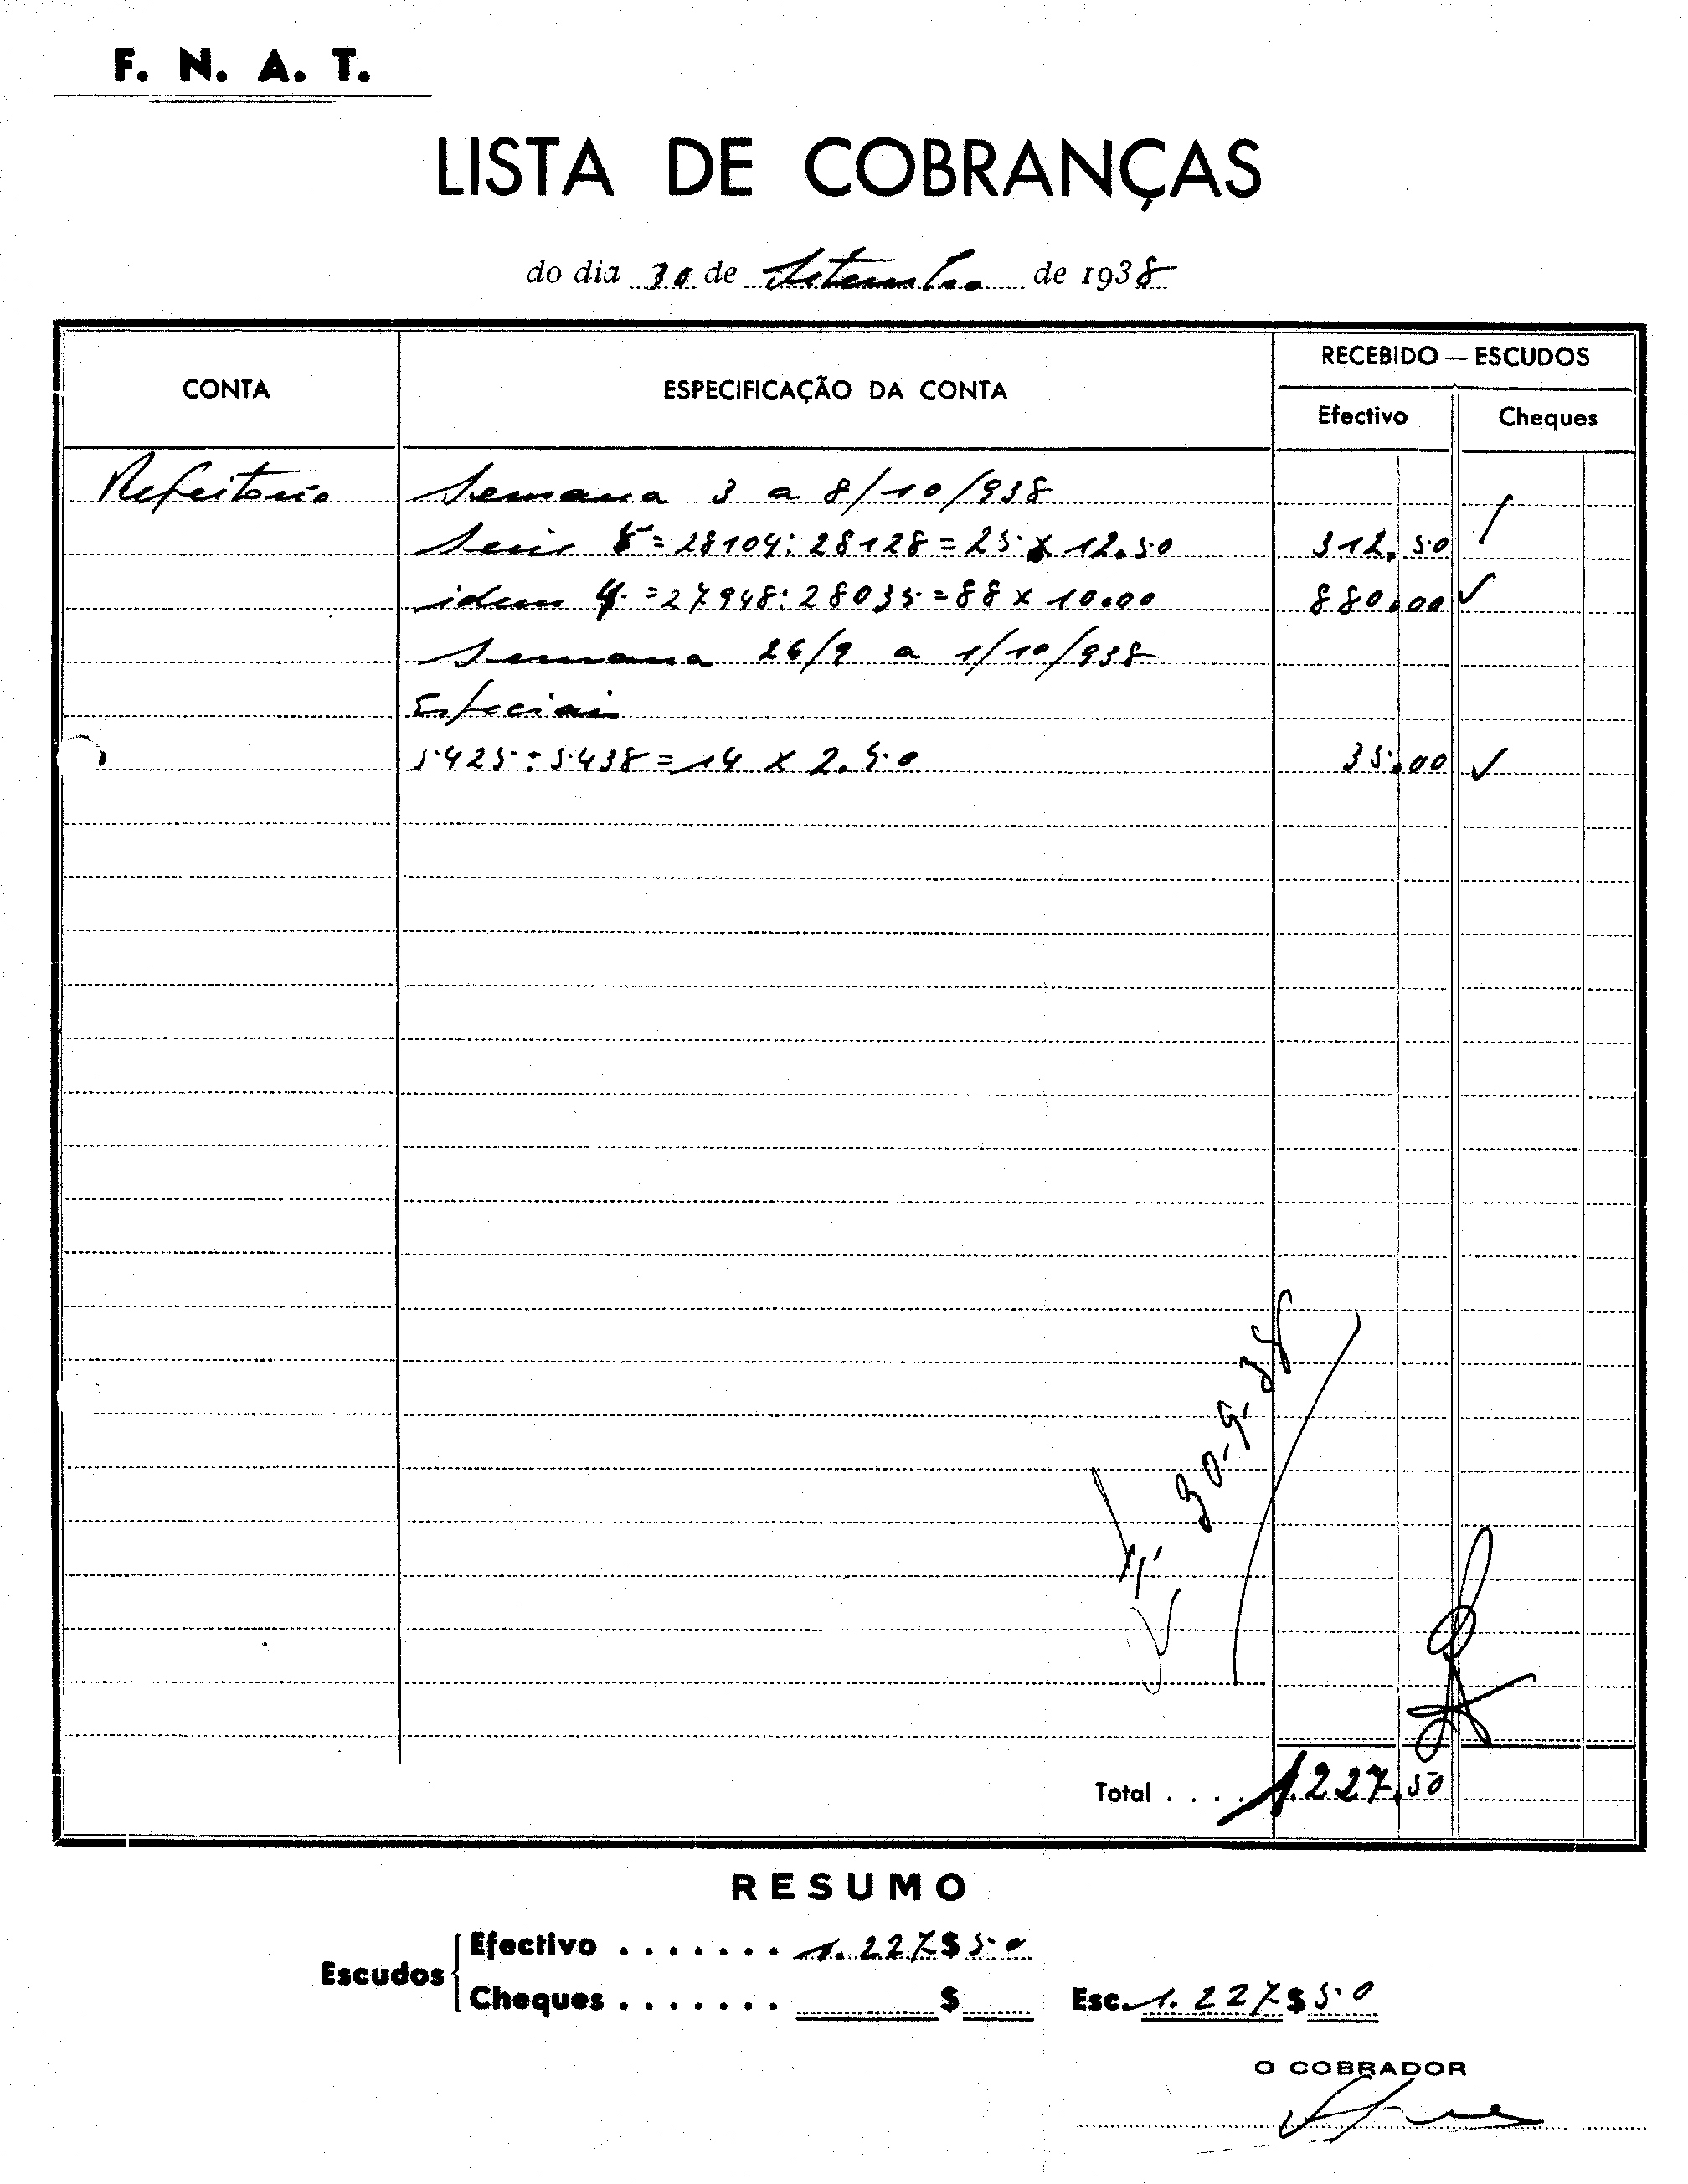 F. N. A. T.
LISTA DE COBRANÇAS
do dia 30 de Setembro de 1938
CONTA
ESPECIFICAÇÃO DA CONTA
RECEBIDO — ESCUDOS
Efectivo
Cheques
Refeitorio Semana 3 a 8/10/938
Serie 5 = 28104 : 28128 = 25 x 12.50 312.50
idem 4 = 27948 : 28035 = 88 x 10.00 880.00 ✓
Semana 26/9 a 1/10/938
Especiai
5425 : 5438 = 14 x 2.50 35.00 ✓
30-9-38
Total . . . . 1.227.50
RESUMO
Escudos
Efectivo . . . . . . . 1.227$50
Cheques . . . . . . . $
Esc. 1.227$50
O COBRADOR